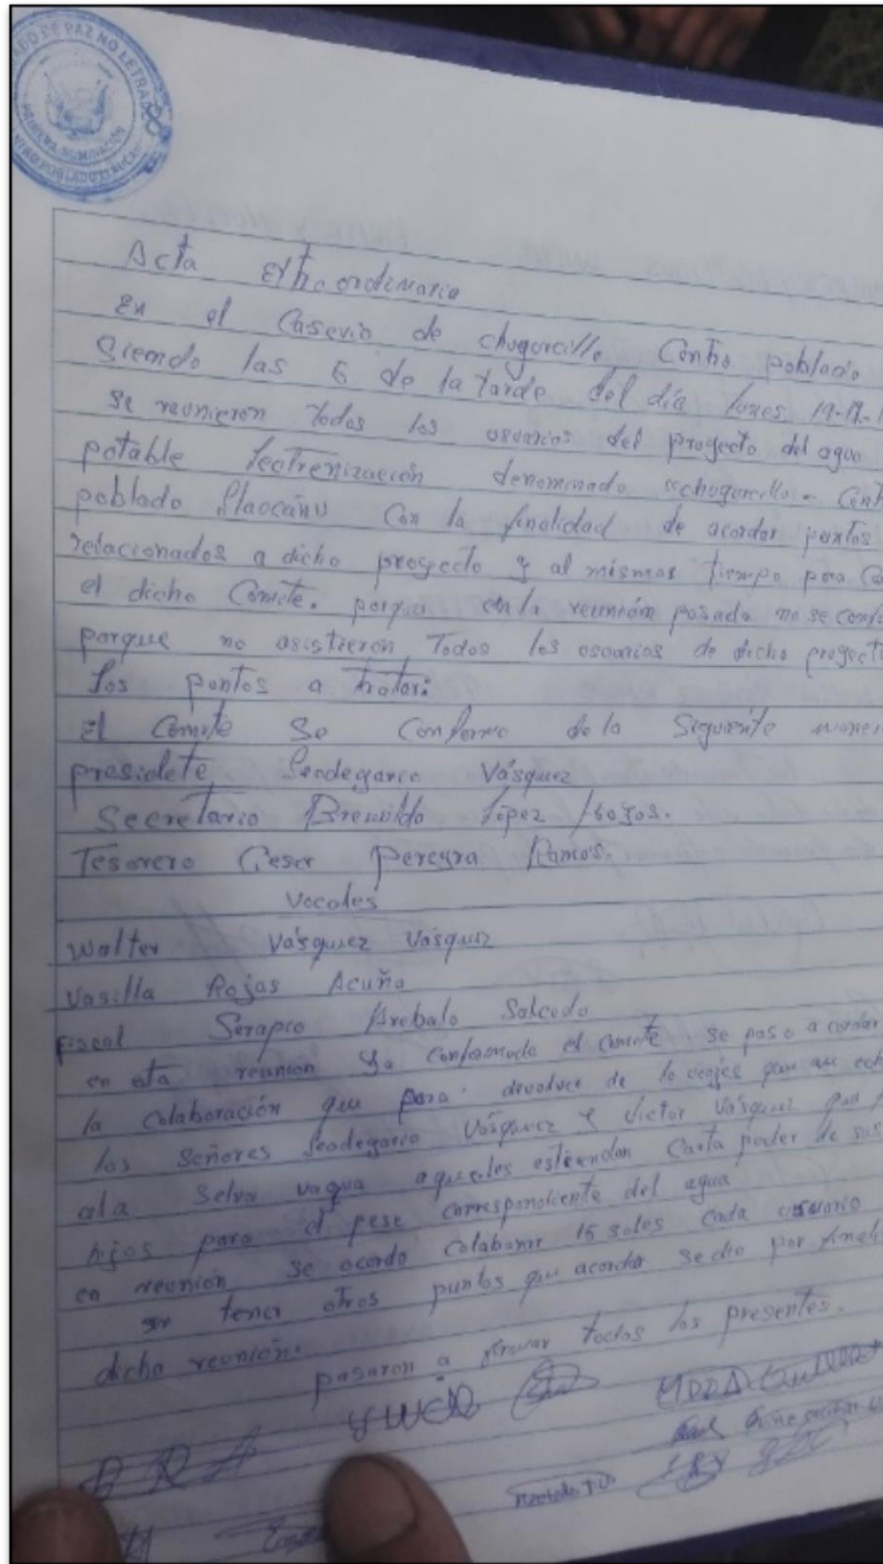 JUZGADO DE PAZ NO LETRADO
PRIMERA NOMINACIÓN
CENTRO POBLADO
Acta Extraordinaria
En el Caserio de chugurcillo Centro poblado
Siendo las 6 de la tarde del día lunes
se reunieron todos los usuarios del proyecto del agua
potable denominado "chugurcillo - Cent
poblado Con la finalidad de acordar puntos
relacionados a dicho proyecto y al mismos tiempo para Co
el dicho Comite. porque en la reunión pasada no se conf
porque no asistieron Todos los usuarios de dicho proyect
los puntos a tratar:
El Comite se Conformo de la Siguiente maner
presidete Leodegario Vásquez
Secretario López
Tesorero Ceser Pereyra Ramos.
Vocales
Walter Vásquez Vásquez
Vasilla Rojas Acuña
Fiscal Serapio Arebalo Salcedo
en esta reunion ya conformado el comite se paso a cordar
la colaboración que para devolver de
los Señores Leodegario Vásquez e Victor Vásquez que
ala Selva vagua Carta poder de sus
hijos para el correspondiente del agua
en reunión se acordo colaborar 15 soles cada usuario
sin tener otros puntos que acordar se dio por finali
dicha reunión.
pasaron a firmar todos los presentes.